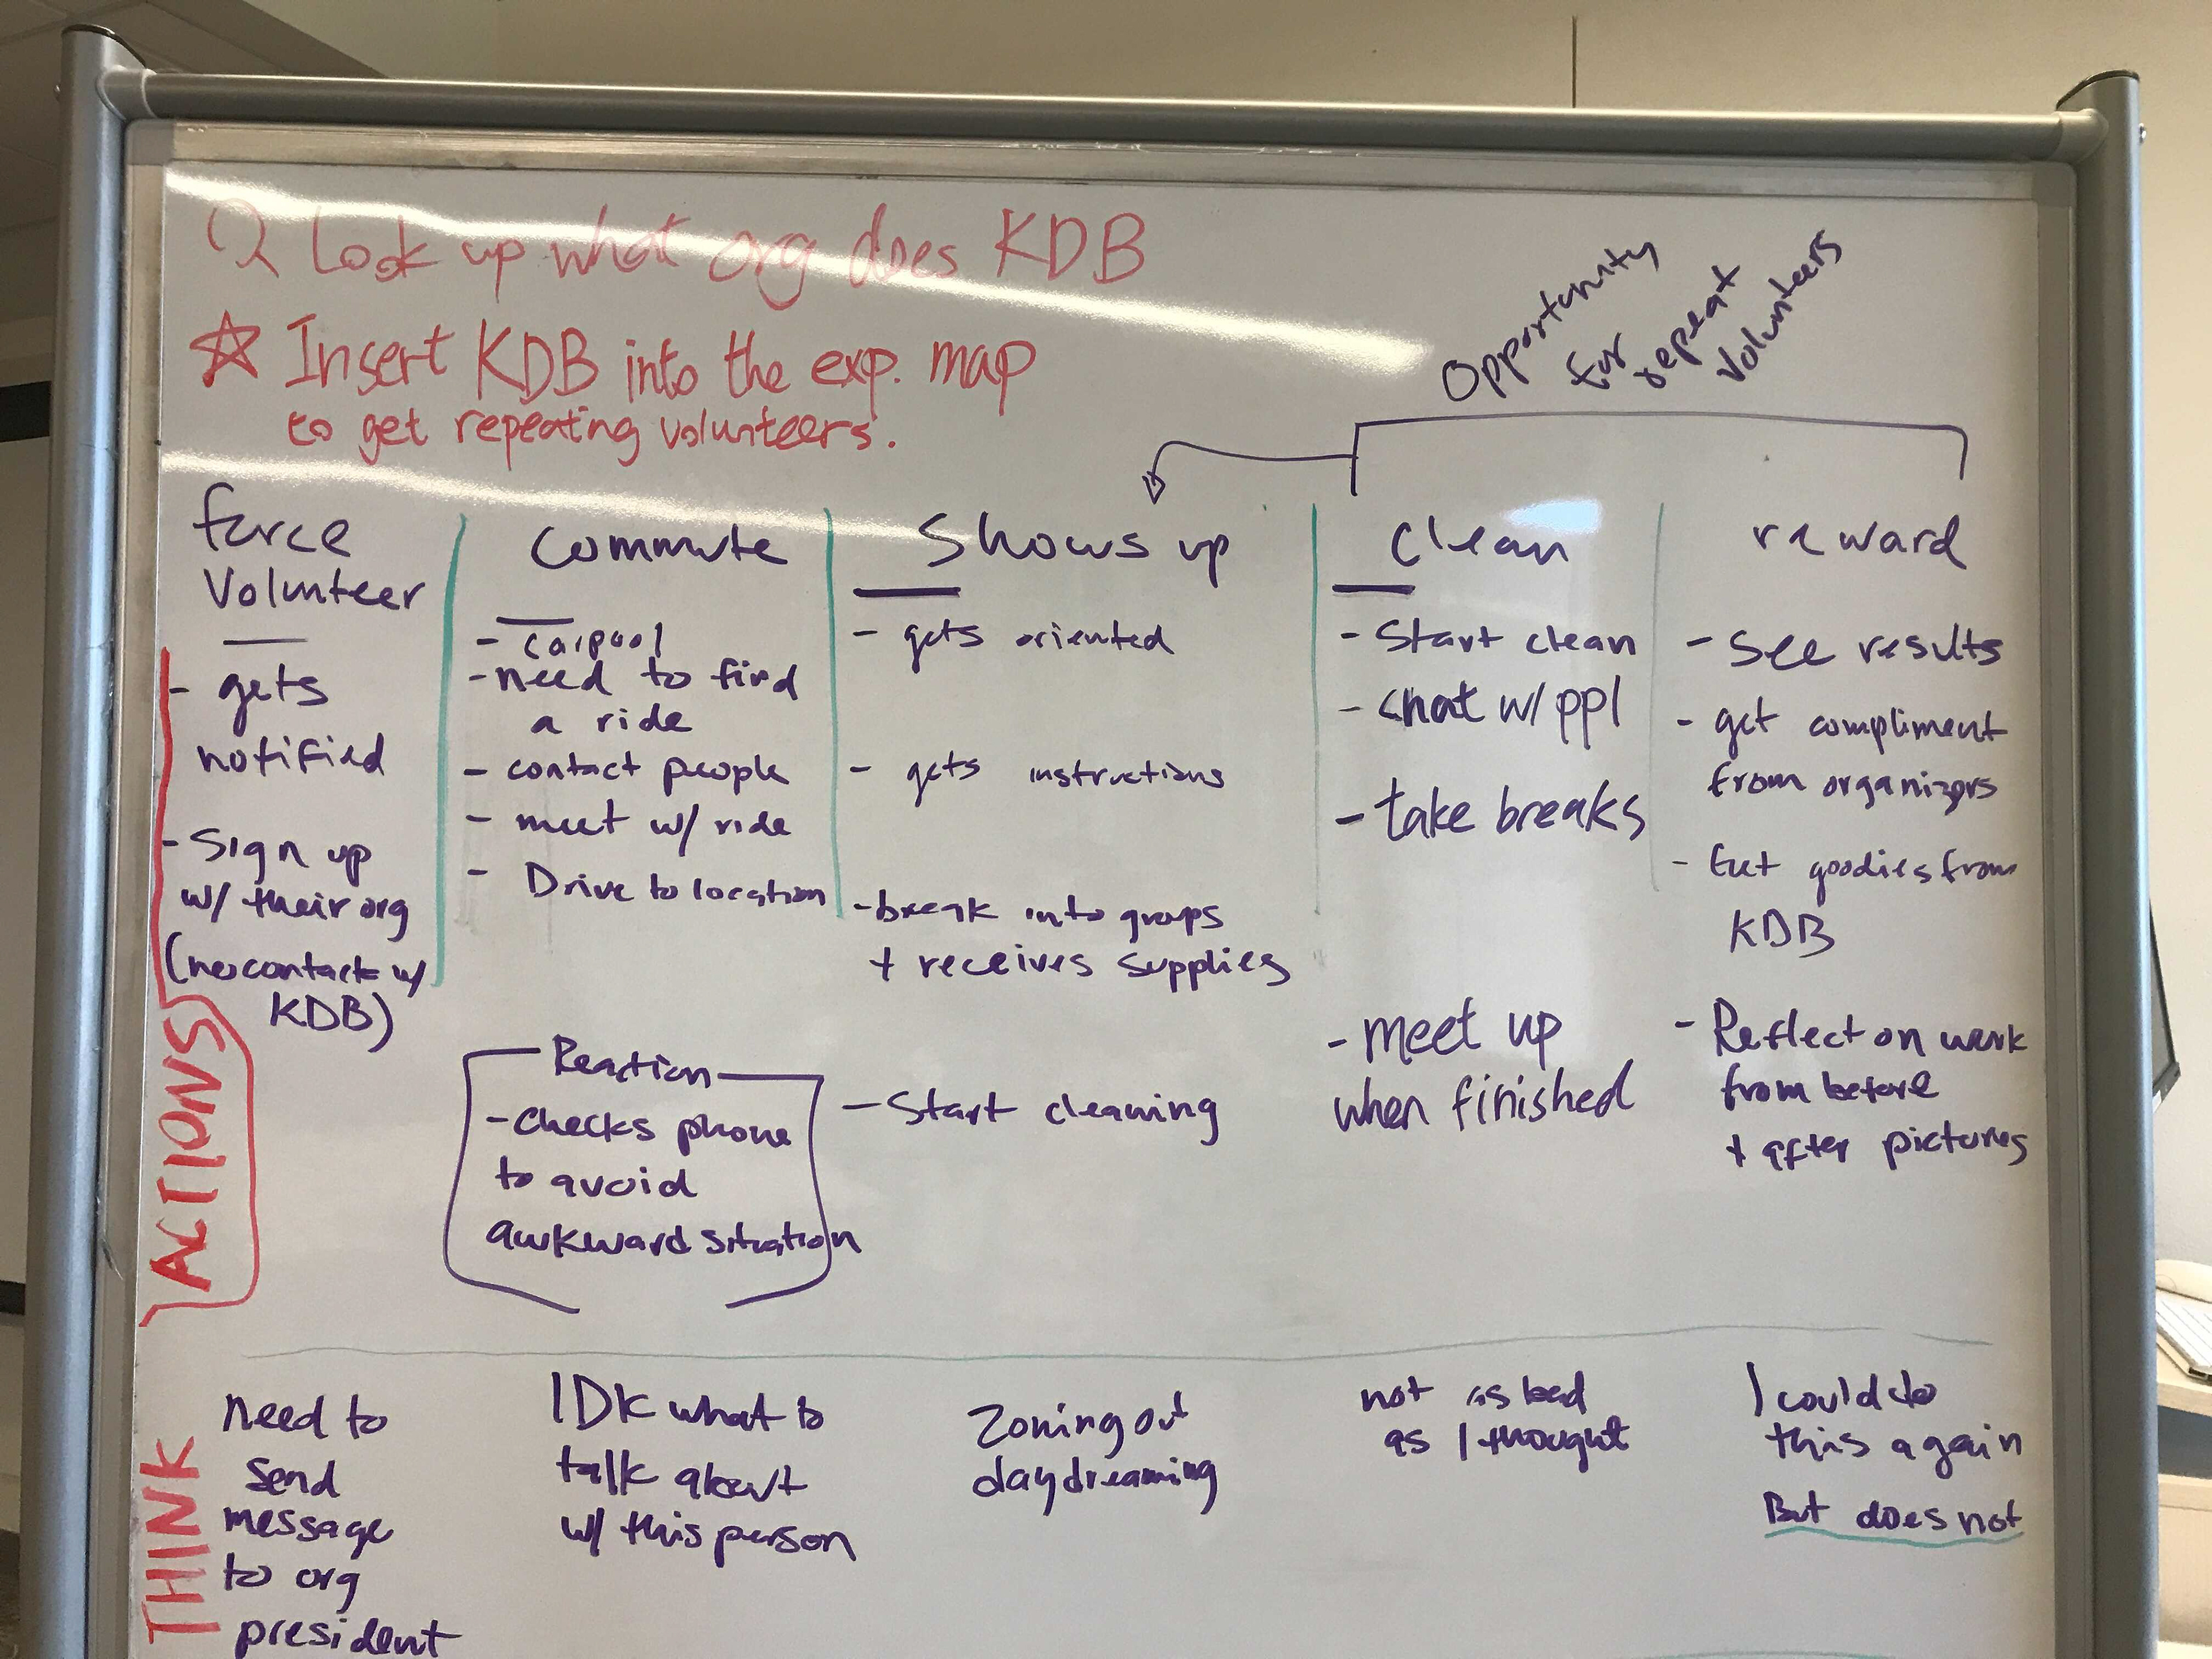 Q Look up what org does KDB
☆ Insert KDB into the exp. map
to get repeating volunteers.
Opportunity
for
repeat
Volunteers
force
Volunteer
- gets
notified
- Sign up
w/ their org
(no contact w/
KDB)
Commute
- carpool
- need to find
a ride
- contact people
- meet w/ ride
- Drive to location
Reaction
- Checks phone
to avoid
awkward situation
Shows up
- gets oriented
- gets instructions
- break into groups
+ receives supplies
- Start cleaning
Clean
- Start clean
- chat w/ ppl
- take breaks
- meet up
when finished
reward
- See results
- get compliment
from organizers
- Get goodies from
KDB
- Reflect on work
from before
+ after pictures
ACTIONS
THINK
need to
send
message
to org
president
IDK what to
talk about
w/ this person
Zoning out
daydreaming
not as bad
as I thought
I could do
this again
But does not